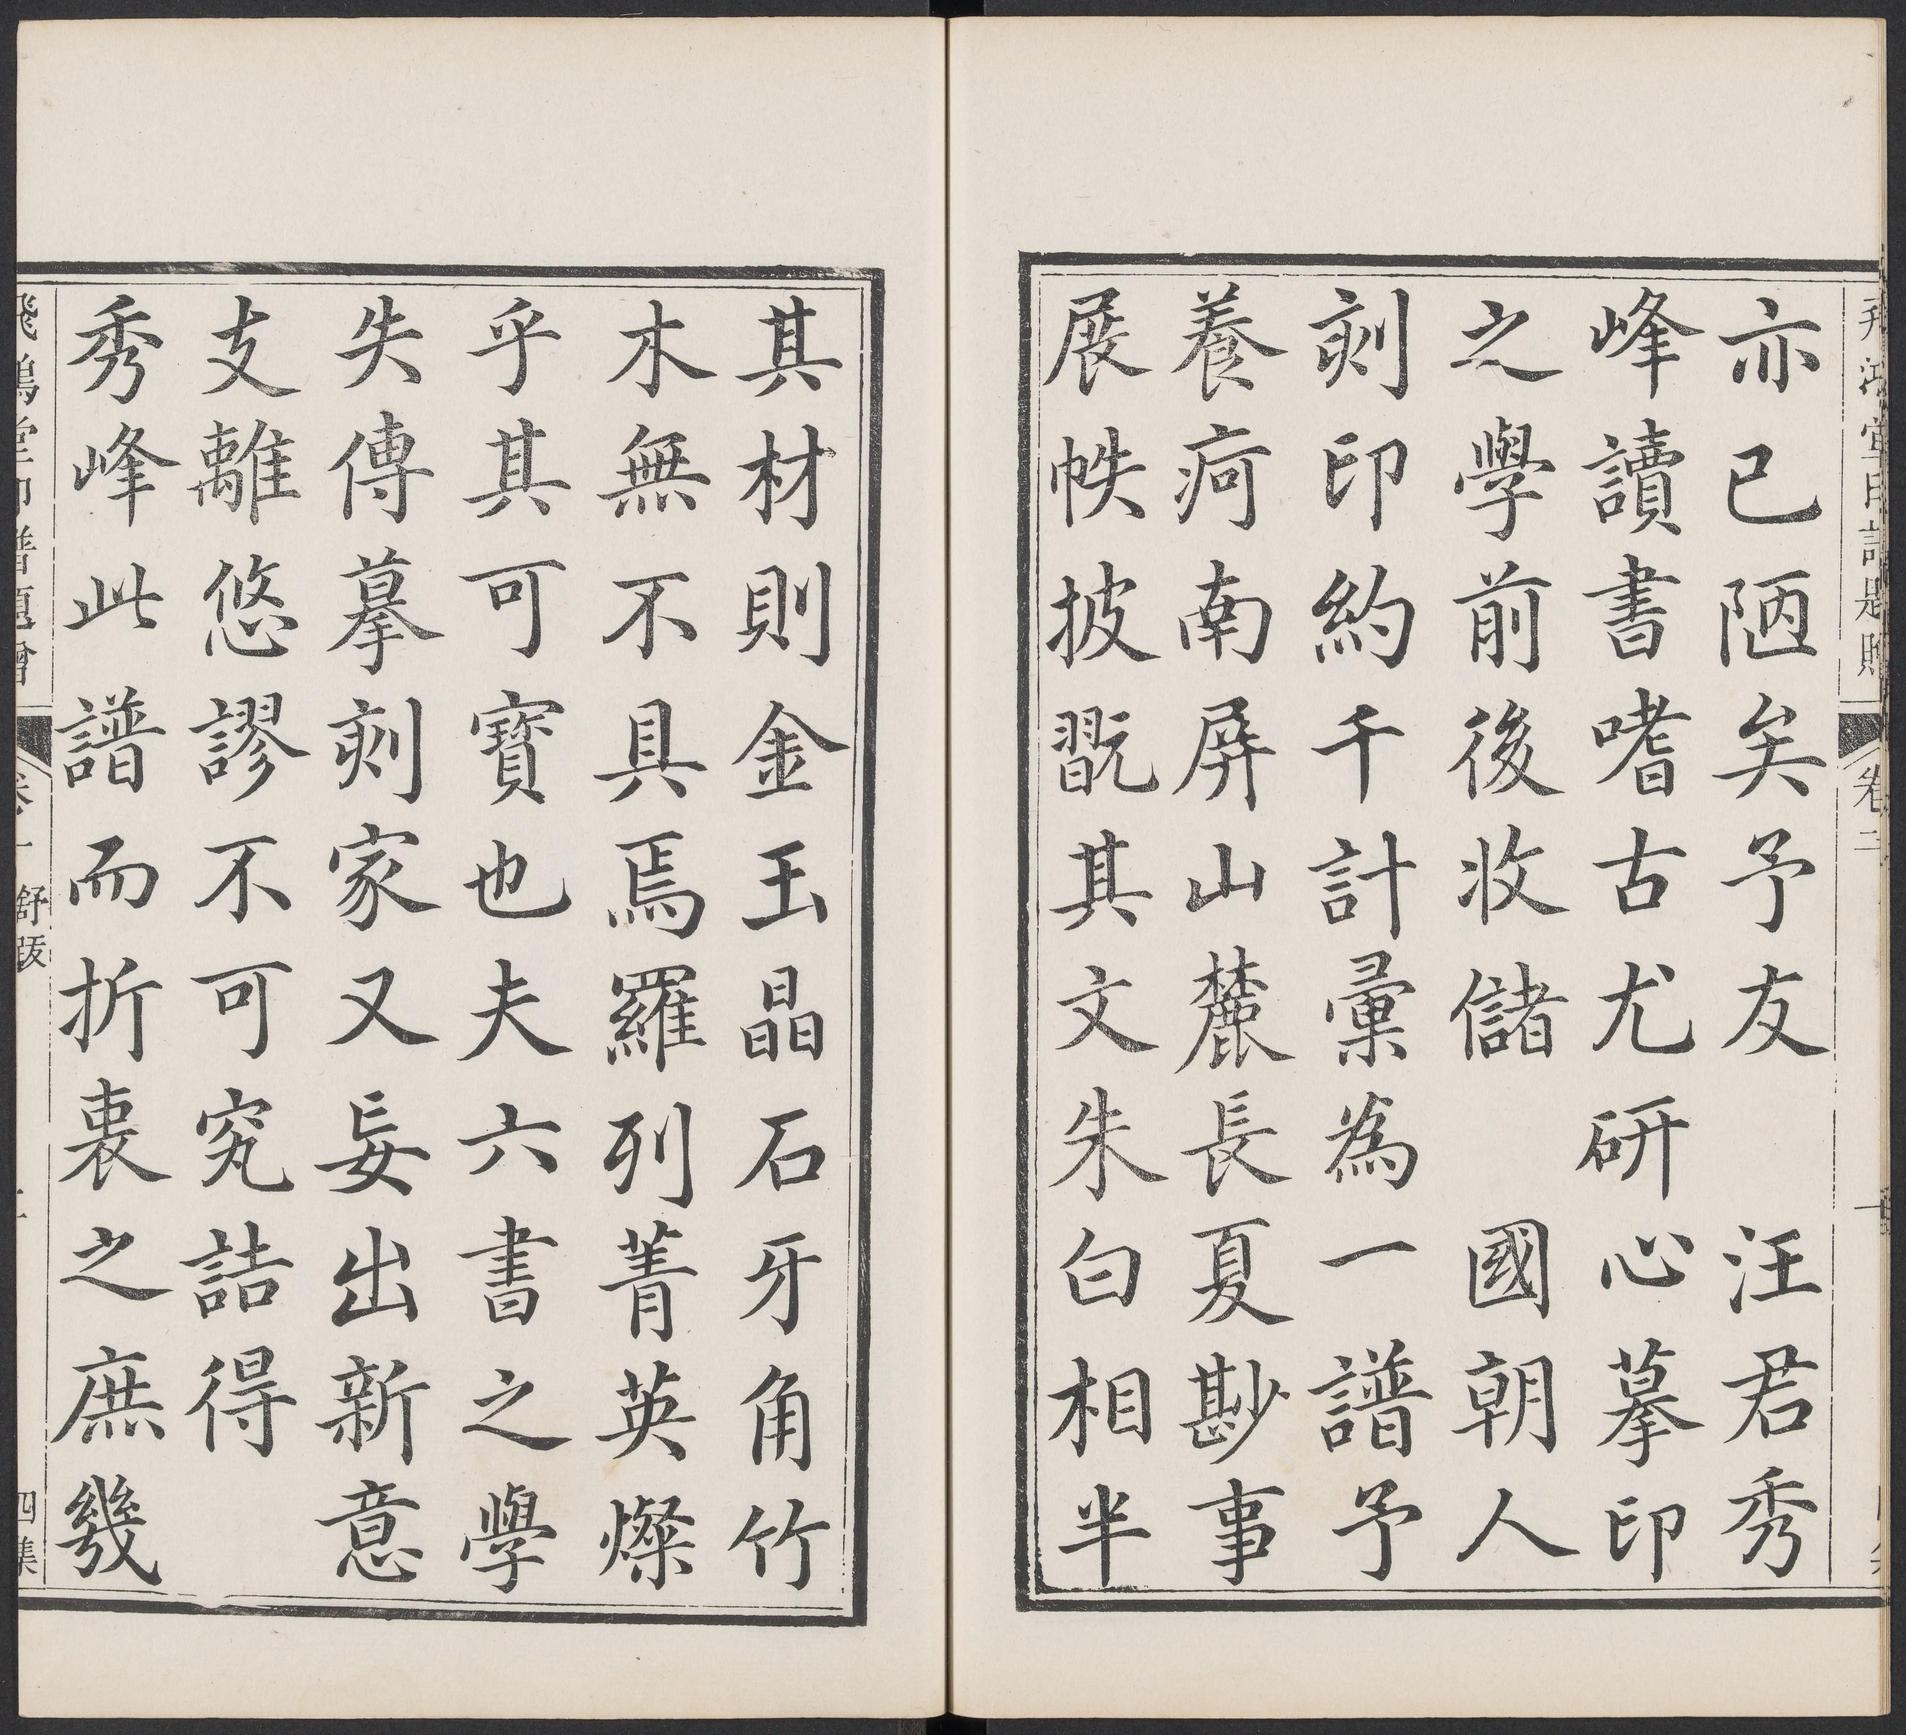 亦已陋矣予友 汪君秀
峰讀書嗜古尤研心摹印
之學前後收儲 國朝人
刻印約千計彙為一譜予
養疴南屏山麓長夏尠事
展帙披翫其文朱白相半
其材則金玉晶石牙角竹
木無不具焉羅列菁英燦
乎其可寶也夫六書之學
失傳摹刻家又妄出新意
支離悠謬不可究詰得
秀峰此譜而折衷之庶幾
飛鴻堂印譜題贈 卷二 舒跋 四集